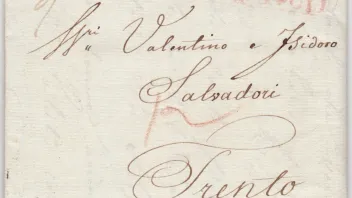 Sg.ri Valentino e Isidoro
Salvadori
Trento